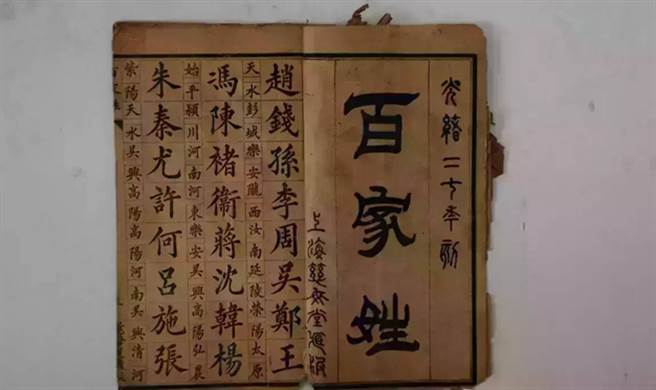 光緒二十年刻
百家姓
上海堂
趙錢孫李周吳鄭王
天水彭城樂安隴西汝南延陵滎陽太原
馮陳褚衛蔣沈韓楊
始平潁川河南河東樂安吳興陽弘農
朱秦尤許何呂施張
紫陽天水吳興高陽高陽河南吳興清河